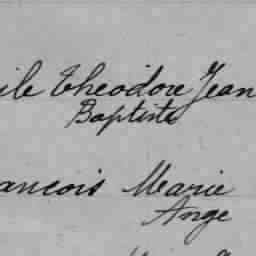 ile Theodore Jean
Baptiste
ancois Marie
Ange